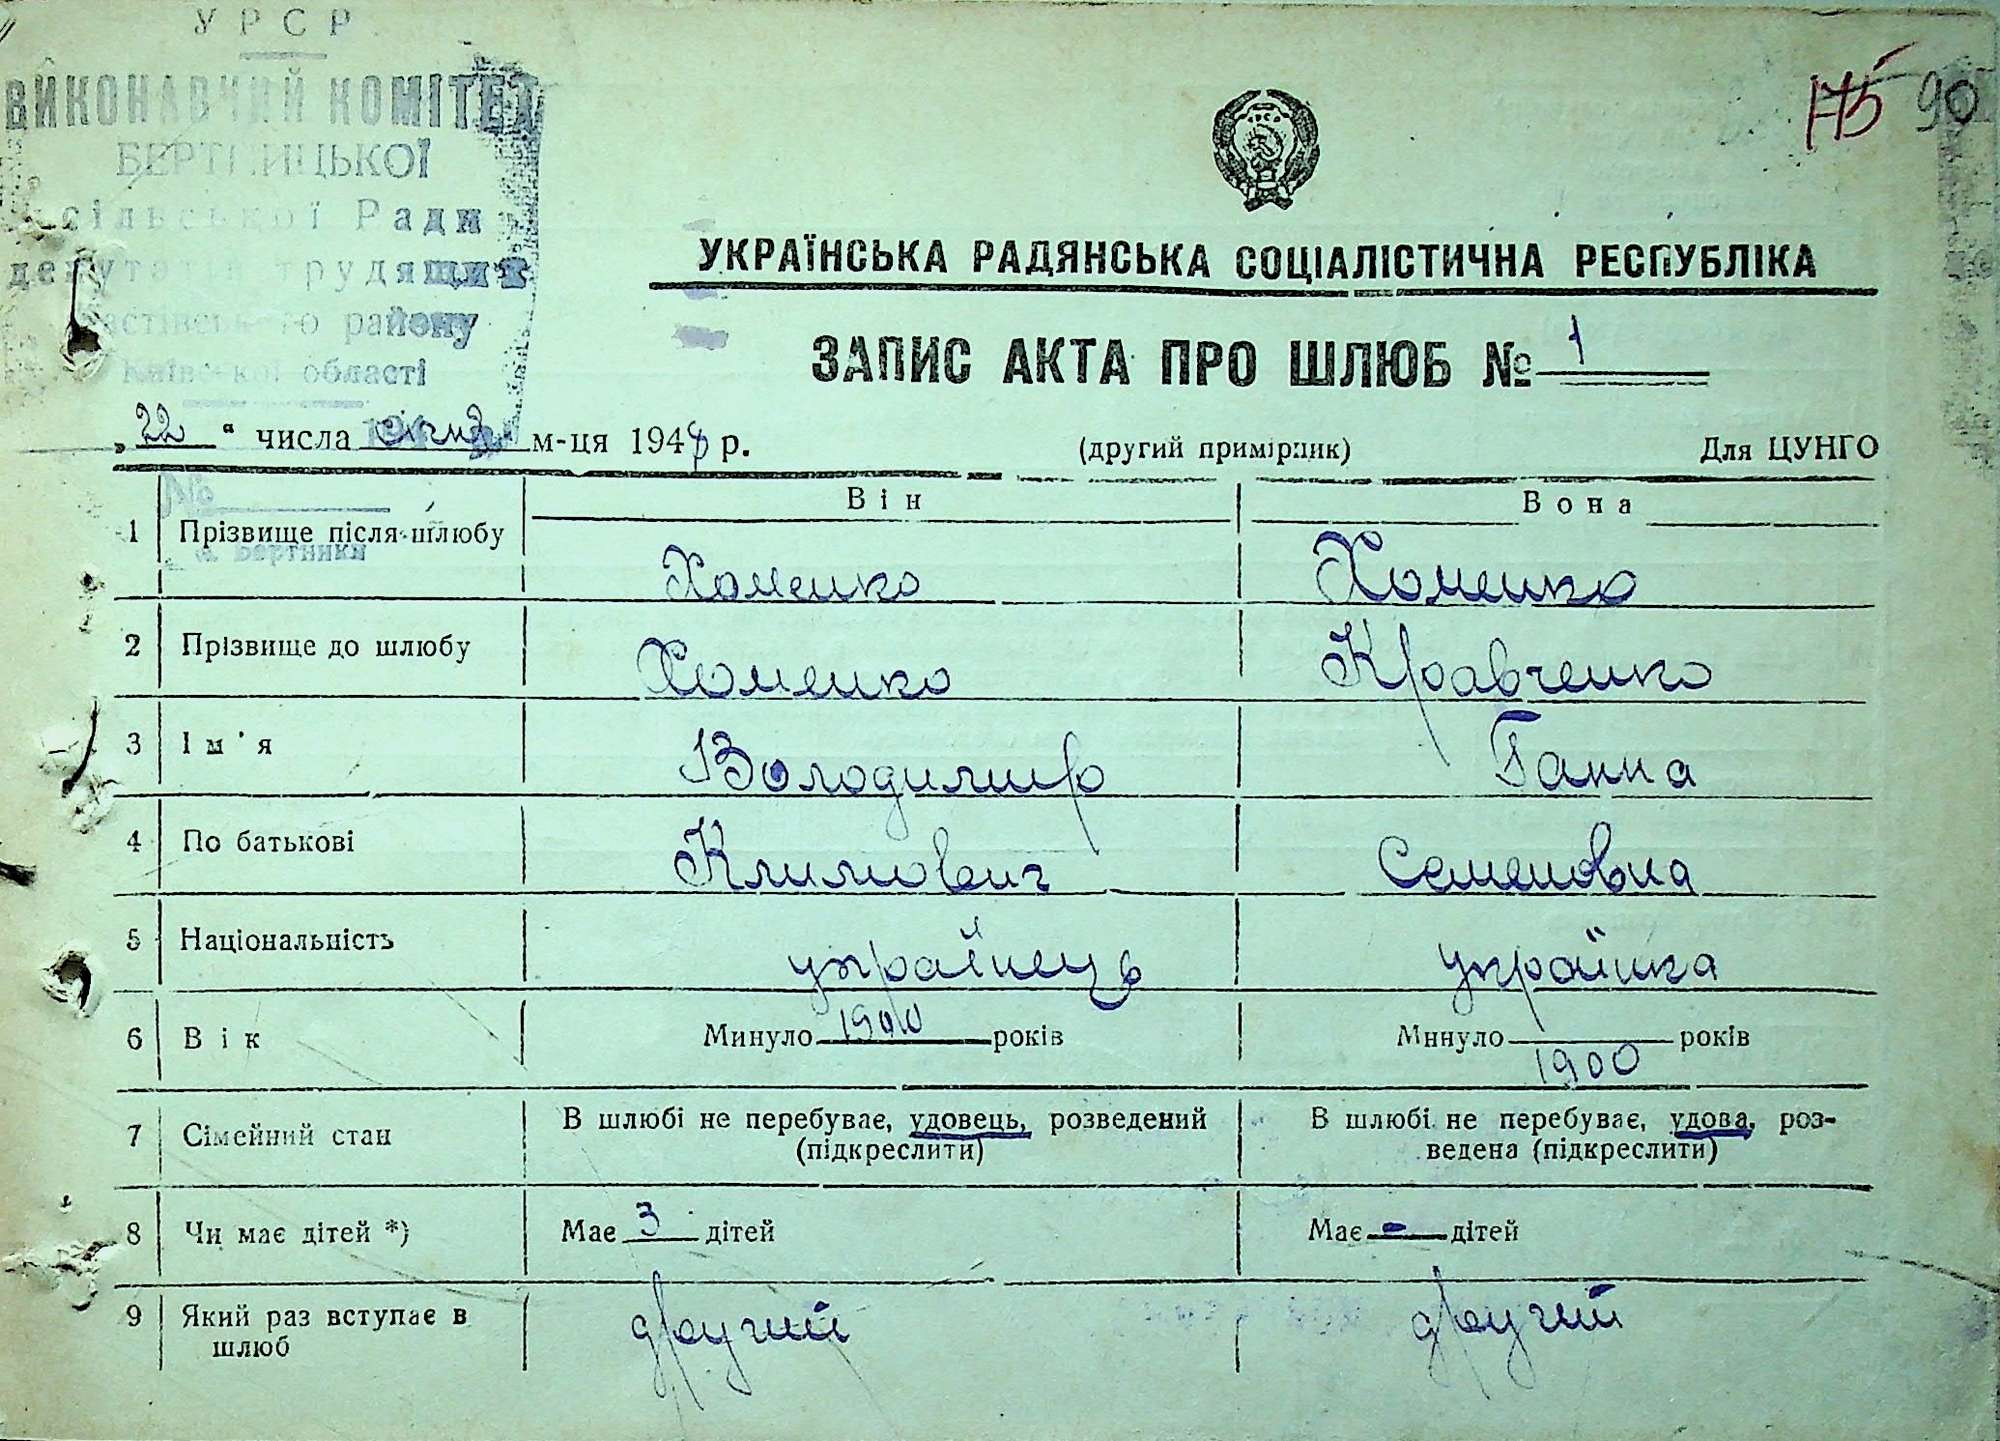 УРСР
ВИКОНАВЧИЙ КОМІТЕТ
БЕРТНИЦЬКОЇ
сільської Ради
депутатів трудящих
району
Київської області
175 90
УКРАЇНСЬКА РАДЯНСЬКА СОЦІАЛІСТИЧНА РЕСПУБЛІКА
ЗАПИС АКТА ПРО ШЛЮБ № 1
„22“ числа січня м-ця 1948 р. (другий примірник) Для ЦУНГО
№
с. Бертники
Він Вона
1 Прізвище після шлюбу Хоменко Хоменко
2 Прізвище до шлюбу Хоменко Кравченко
3 Ім'я Володимир Ганна
4 По батькові Климович Семеновна
5 Національність українець українка
6 Вік Минуло 1900 років Минуло 1900 років
7 Сімейний стан В шлюбі не перебуває, удовець, розведений В шлюбі не перебуває, удова, роз-
(підкреслити) ведена (підкреслити)
8 Чи має дітей *) Має 3 дітей Має - дітей
9 Який раз вступає в другий другий
шлюб